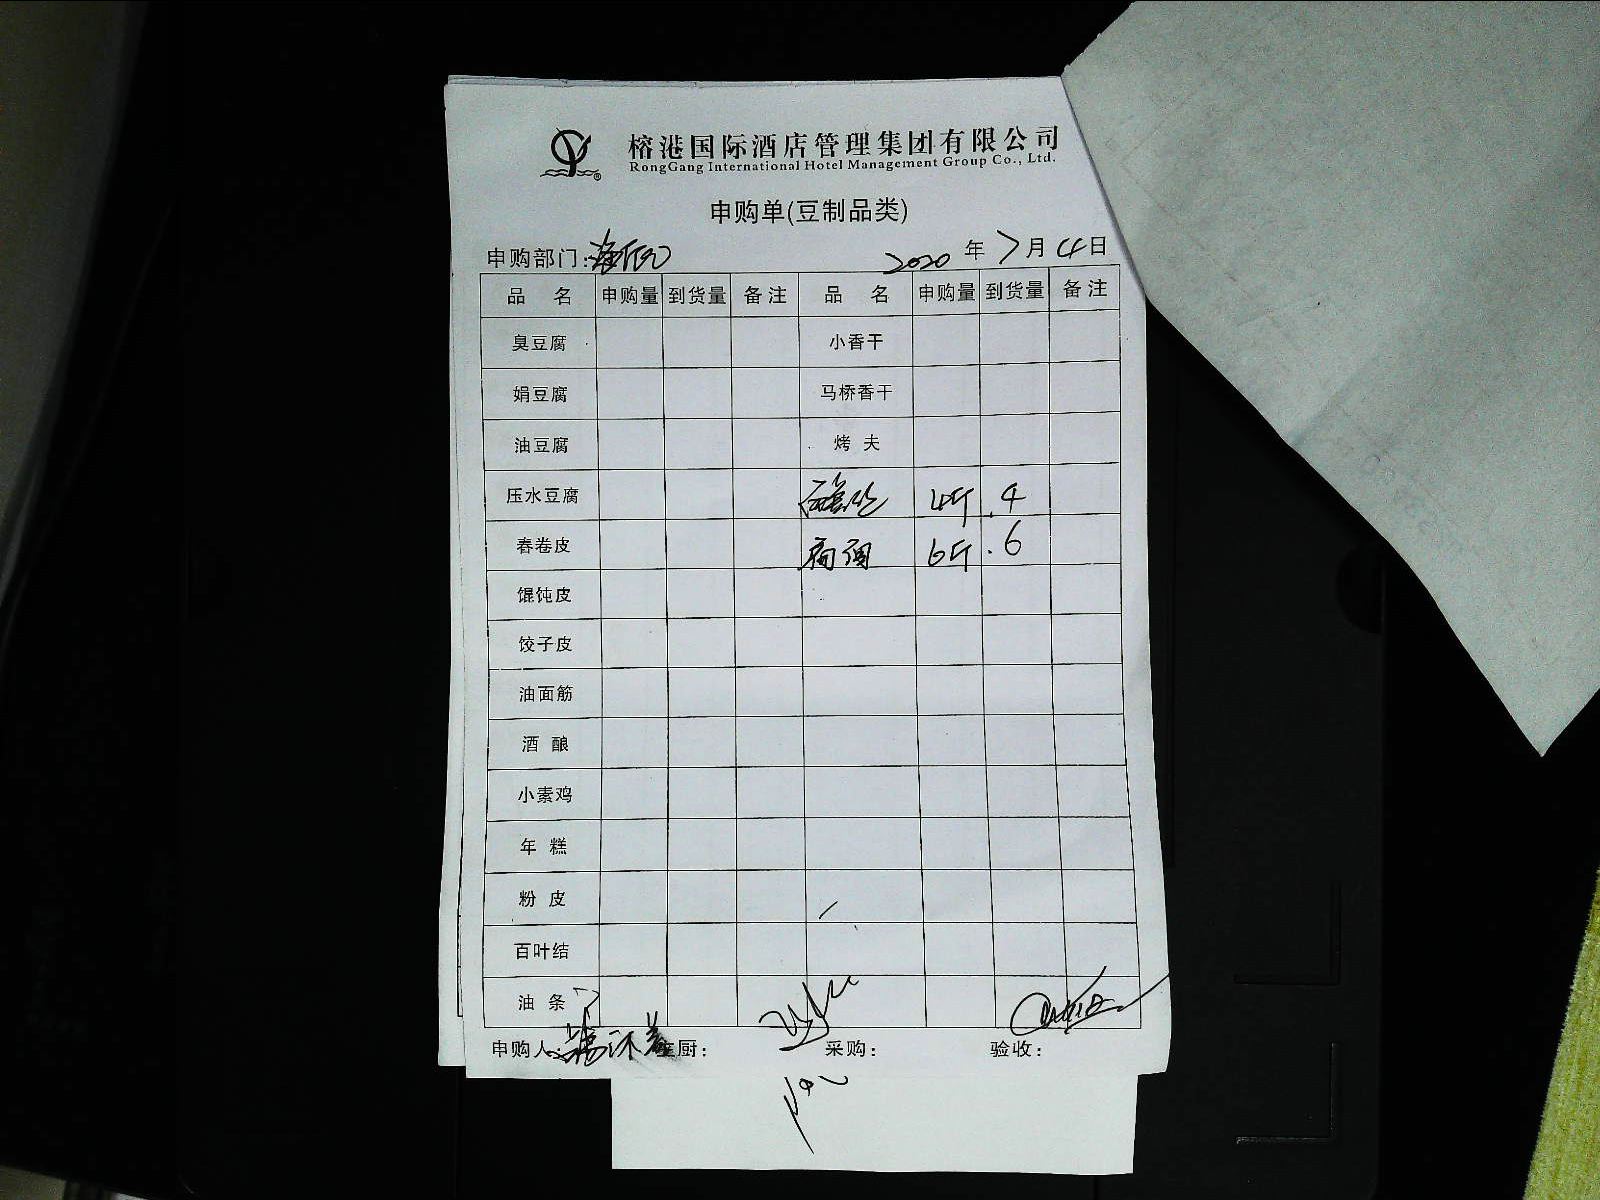 榕港国际酒店管理集团有限公司
RongGang International Hotel Management Group Co., Ltd.
申购单(豆制品类)
申购部门: 2020 年 7 月 4 日
品 名 申购量 到货量 备注 品 名 申购量 到货量 备注
臭豆腐 小香干
娟豆腐 马桥香干
油豆腐 烤 夫
压水豆腐 4斤 4
春卷皮 6斤 6
馄饨皮
饺子皮
油面筋
酒 酿
小素鸡
年 糕
粉 皮
百叶结
油 条
申购人: 厨: 采购: 验收: